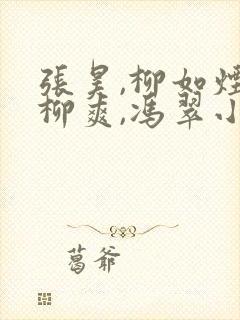 張昊,柳如煙
柳爽,馮翠小
葛爷